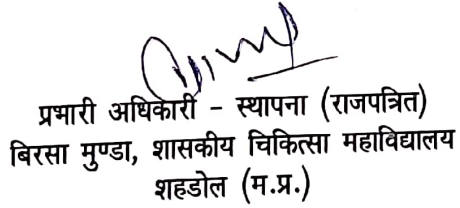 प्रभारी अधिकारी - स्थापना (राजपत्रित)
बिरसा मुण्डा, शासकीय चिकित्सा महाविद्यालय
शहडोल (म.प्र.)